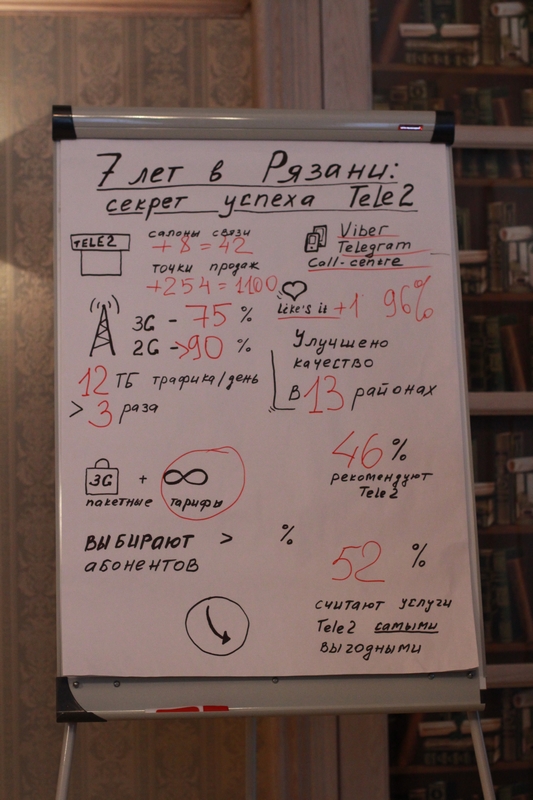 7 лет в Рязани:
секрет успеха Tele2
TELE2
салоны связи
+8=42
точки продаж
+254=1100
Viber
Telegram
Call-centre
like's it +1 96%
3G - 75 %
2G - >90 %
12 ТБ трафика/день
> 3 раза
Улучшено
качество
в 13 районах
3G + ∞
пакетные тарифы
46 %
рекомендуют
Tele2
ВЫБИРАЮТ > %
абонентов
52 %
считают услуги
Tele2 самыми
выгодными